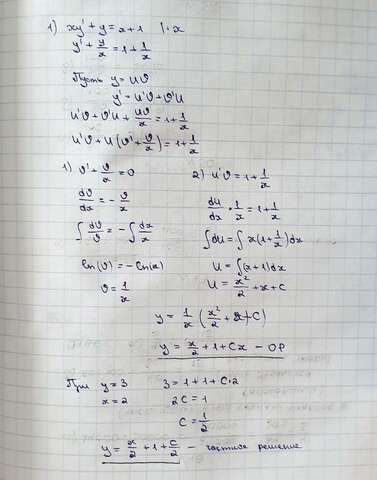 1) xy' + y = x + 1 | · x
y' + y/x = 1 + 1/x
Пусть y = uϑ
y' = u'ϑ + ϑ'u
u'ϑ + ϑ'u + uϑ/x = 1 + 1/x
u'ϑ + u(ϑ' + ϑ/x) = 1 + 1/x
1) ϑ' + ϑ/x = 0
dϑ/dx = - ϑ/x
∫ dϑ/ϑ = - ∫ dx/x
ln(ϑ) = - ln(x)
ϑ = 1/x
2) u'ϑ = 1 + 1/x
du/dx · 1/x = 1 + 1/x
∫ du = ∫ x(1 + 1/x) dx
u = ∫ (x + 1) dx
u = x²/2 + x + C
y = 1/x (x²/2 + x + C)
y = x/2 + 1 + Cx – ОР
При y = 3 3 = 1 + 1 + C · 2
x = 2 2C = 1
C = 1/2
y = x/2 + 1 + C/2 – частное решение